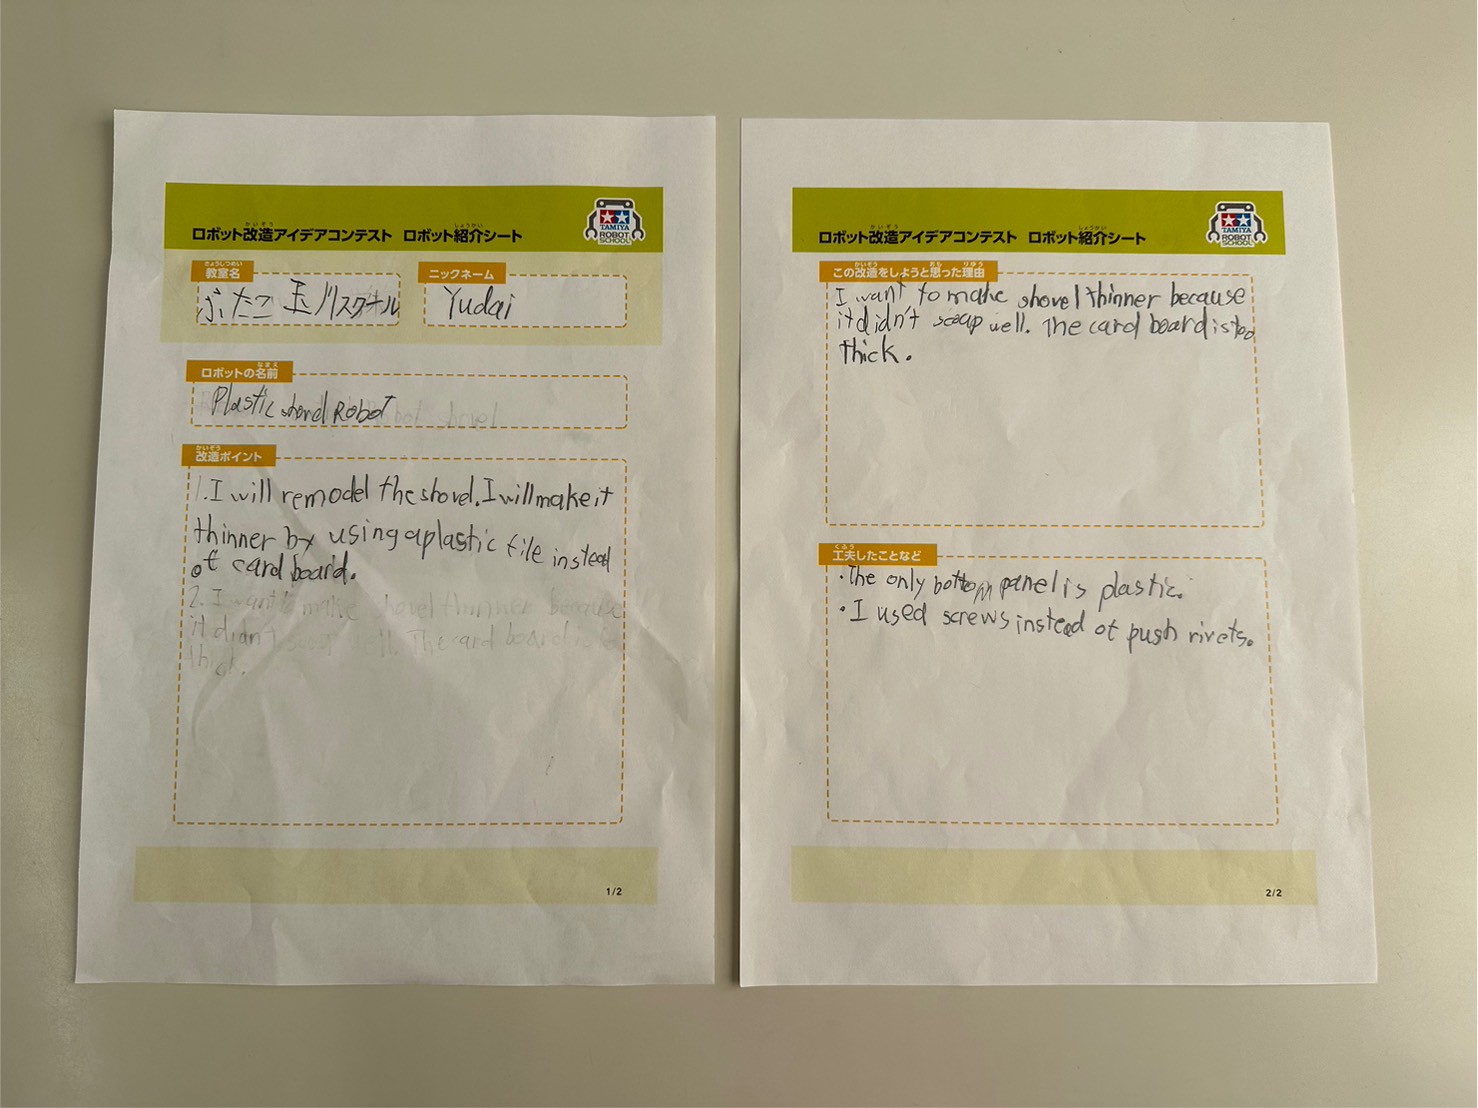 ロボット改造アイデアコンテスト ロボット紹介シート
かいぞう
しょうかい
TAMIYA
ROBOT
SCHOOL
きょうしつめい
教室名
ふたこ玉川スクール
ニックネーム
Yudai
ロボットの名前
なまえ
Plastic shovel Robot
shovel
かいぞう
改造ポイント
1. I will remodel the shovel. I will make it
thinner by using a plastic file instead
of card board.
2. I want to make shovel thinner because
it didn't scoop well. The card board is too
thick.
1/2
ロボット改造アイデアコンテスト ロボット紹介シート
かいぞう
しょうかい
TAMIYA
ROBOT
SCHOOL
この改造をしようと思った理由
かいぞう
おも
りゆう
I want to make shovel thinner because
it didn't scoop well. The card board is too
thick.
くふう
工夫したことなど
・The only bottom panel is plastic.
・I used screws instead of push rivets.
2/2